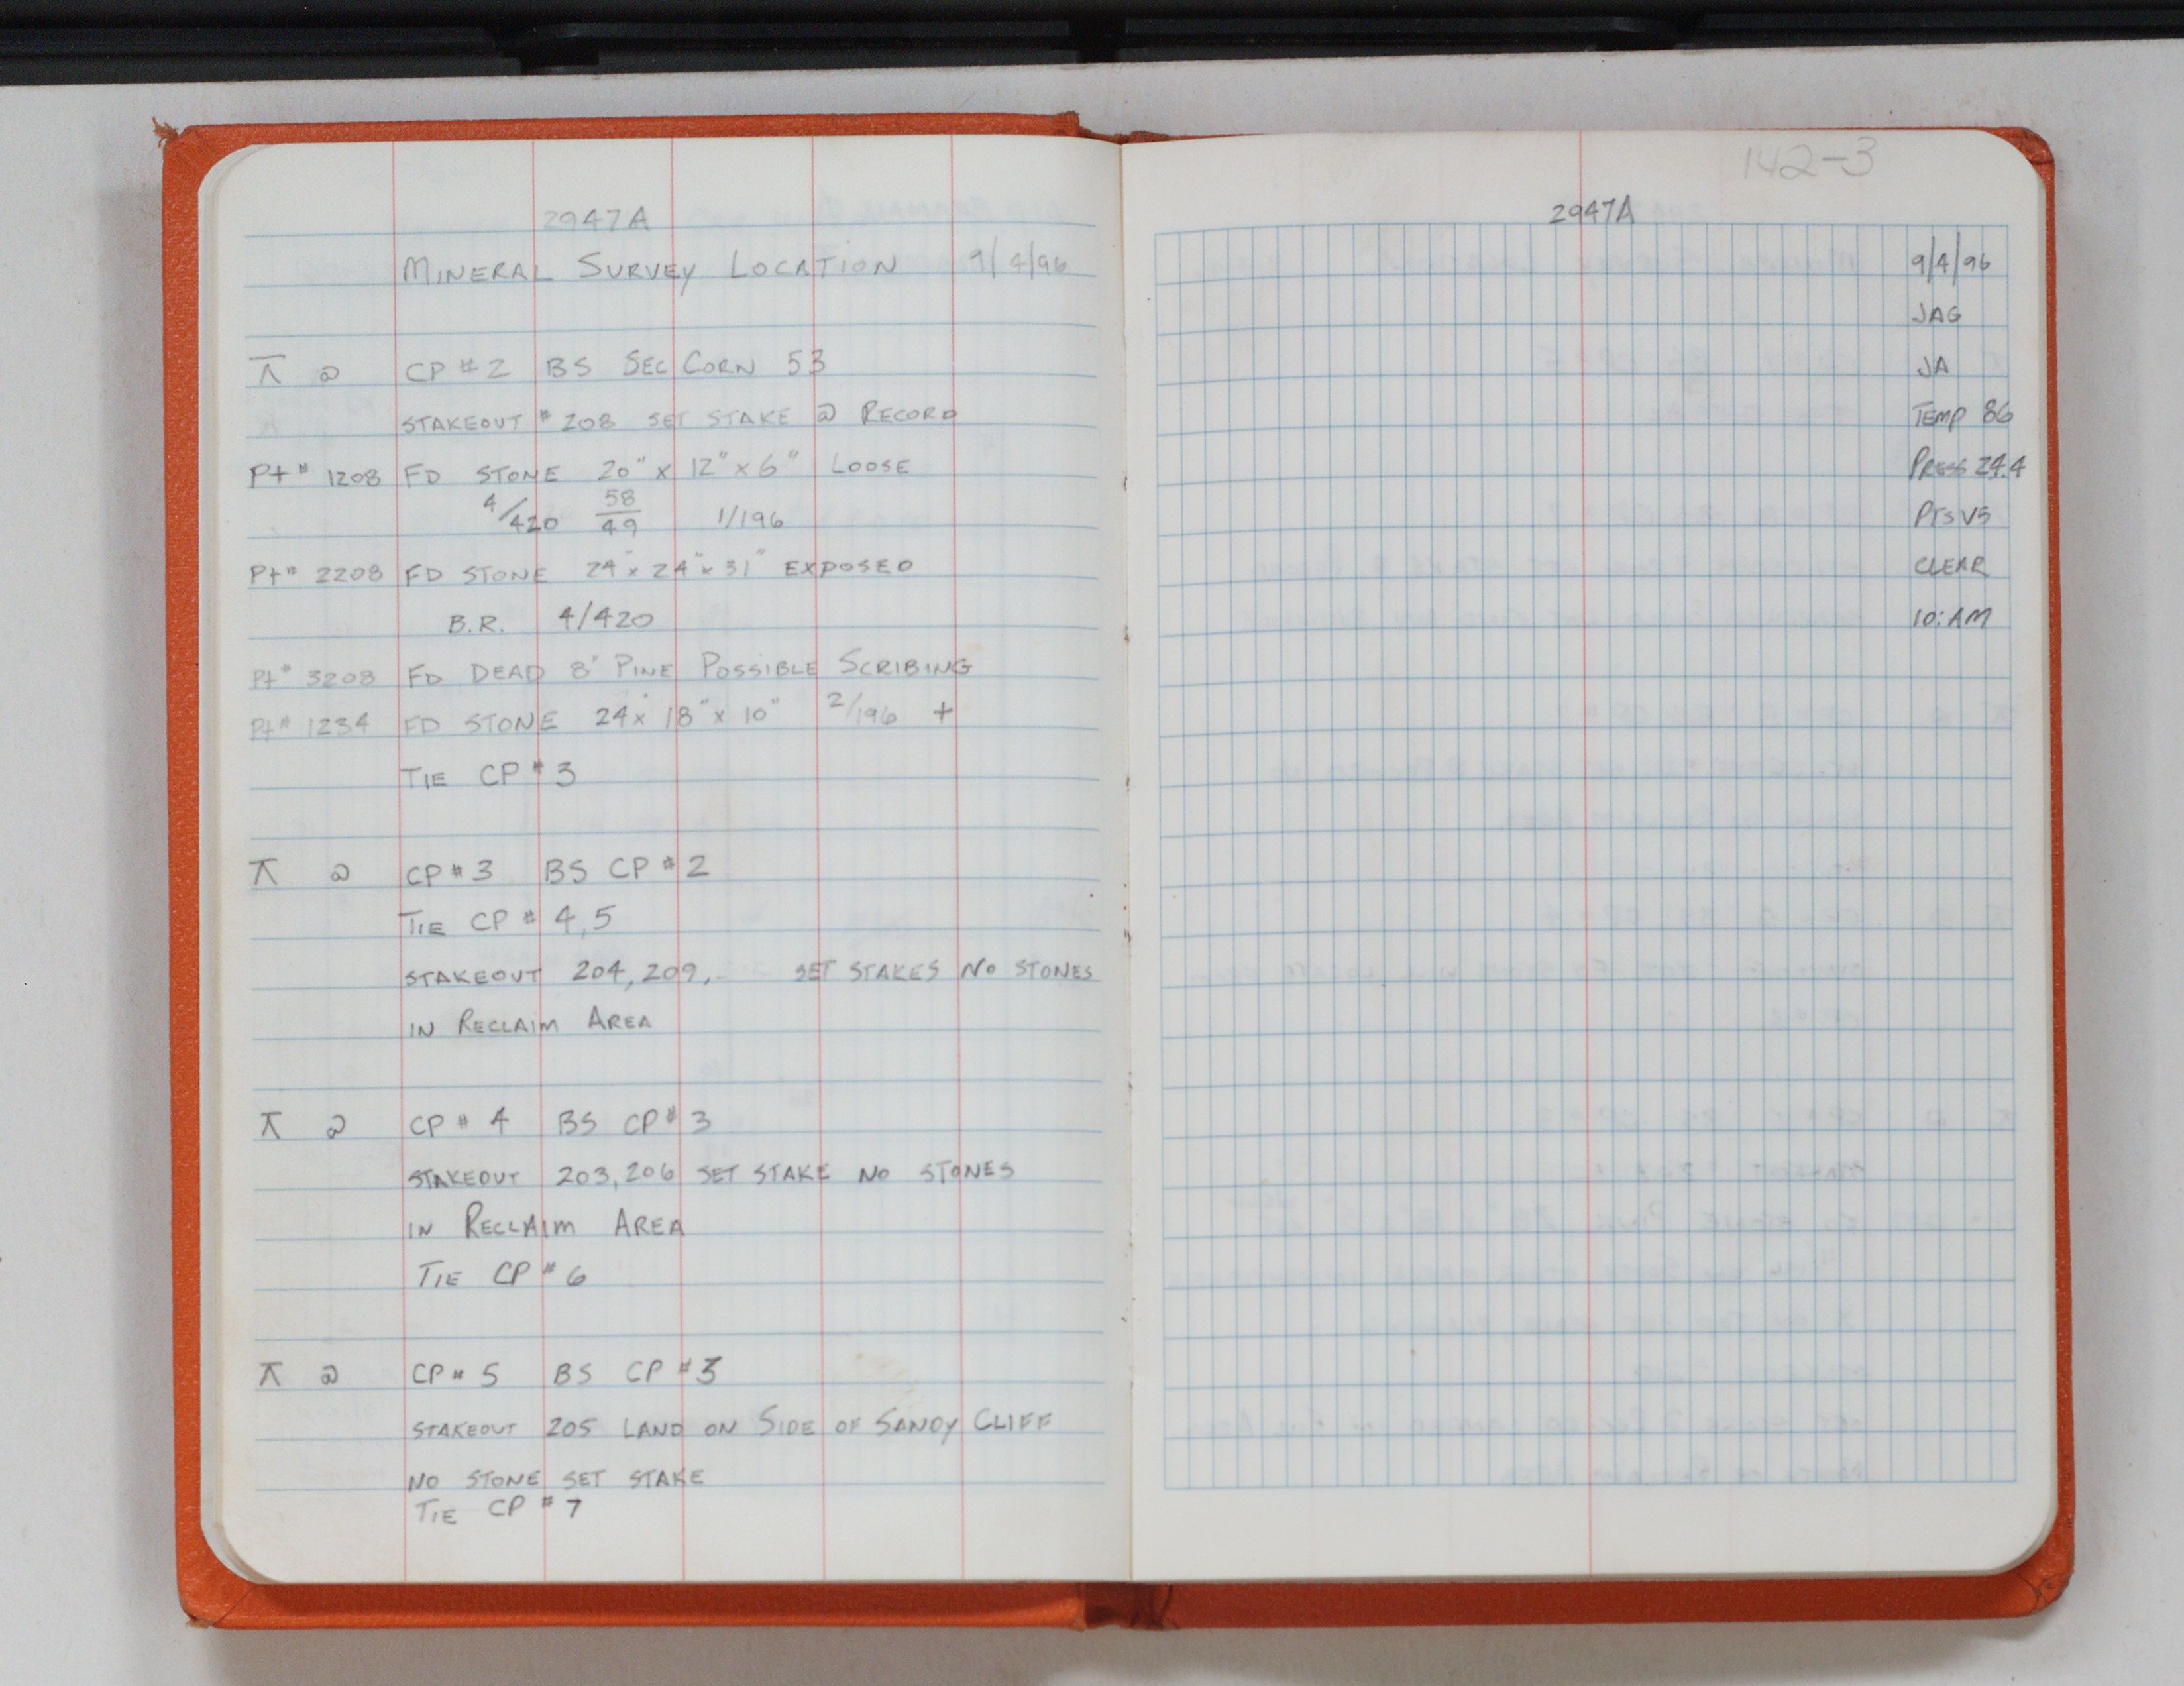 2947A
MINERAL SURVEY LOCATION 9/4/96
⊼ @ CP #2 BS SEC CORN 53
STAKEOUT #208 SET STAKE @ RECORD
Pt# 1208 FD STONE 20" x 12" x 6" LOOSE
4/420 58/49 1/196
Pt# 2208 FD STONE 24" x 24" x 31" EXPOSED
B.R. 4/420
Pt# 3208 FD DEAD 8" PINE POSSIBLE SCRIBING
Pt# 1234 FD STONE 24 x 18" x 10" 2/196 +
TIE CP #3
⊼ @ CP #3 BS CP #2
TIE CP # 4,5
STAKEOUT 204, 209, SET STAKES NO STONES
IN RECLAIM AREA
⊼ @ CP # 4 BS CP #3
STAKEOUT 203, 206 SET STAKE NO STONES
IN RECLAIM AREA
TIE CP #6
⊼ @ CP # 5 BS CP #3
STAKEOUT 205 LAND ON SIDE OF SANDY CLIFF
NO STONE SET STAKE
TIE CP #7
142-3
2947A
9/4/96
JAG
JA
TEMP 86
PRESS 24.4
PTS V5
CLEAR
10:AM